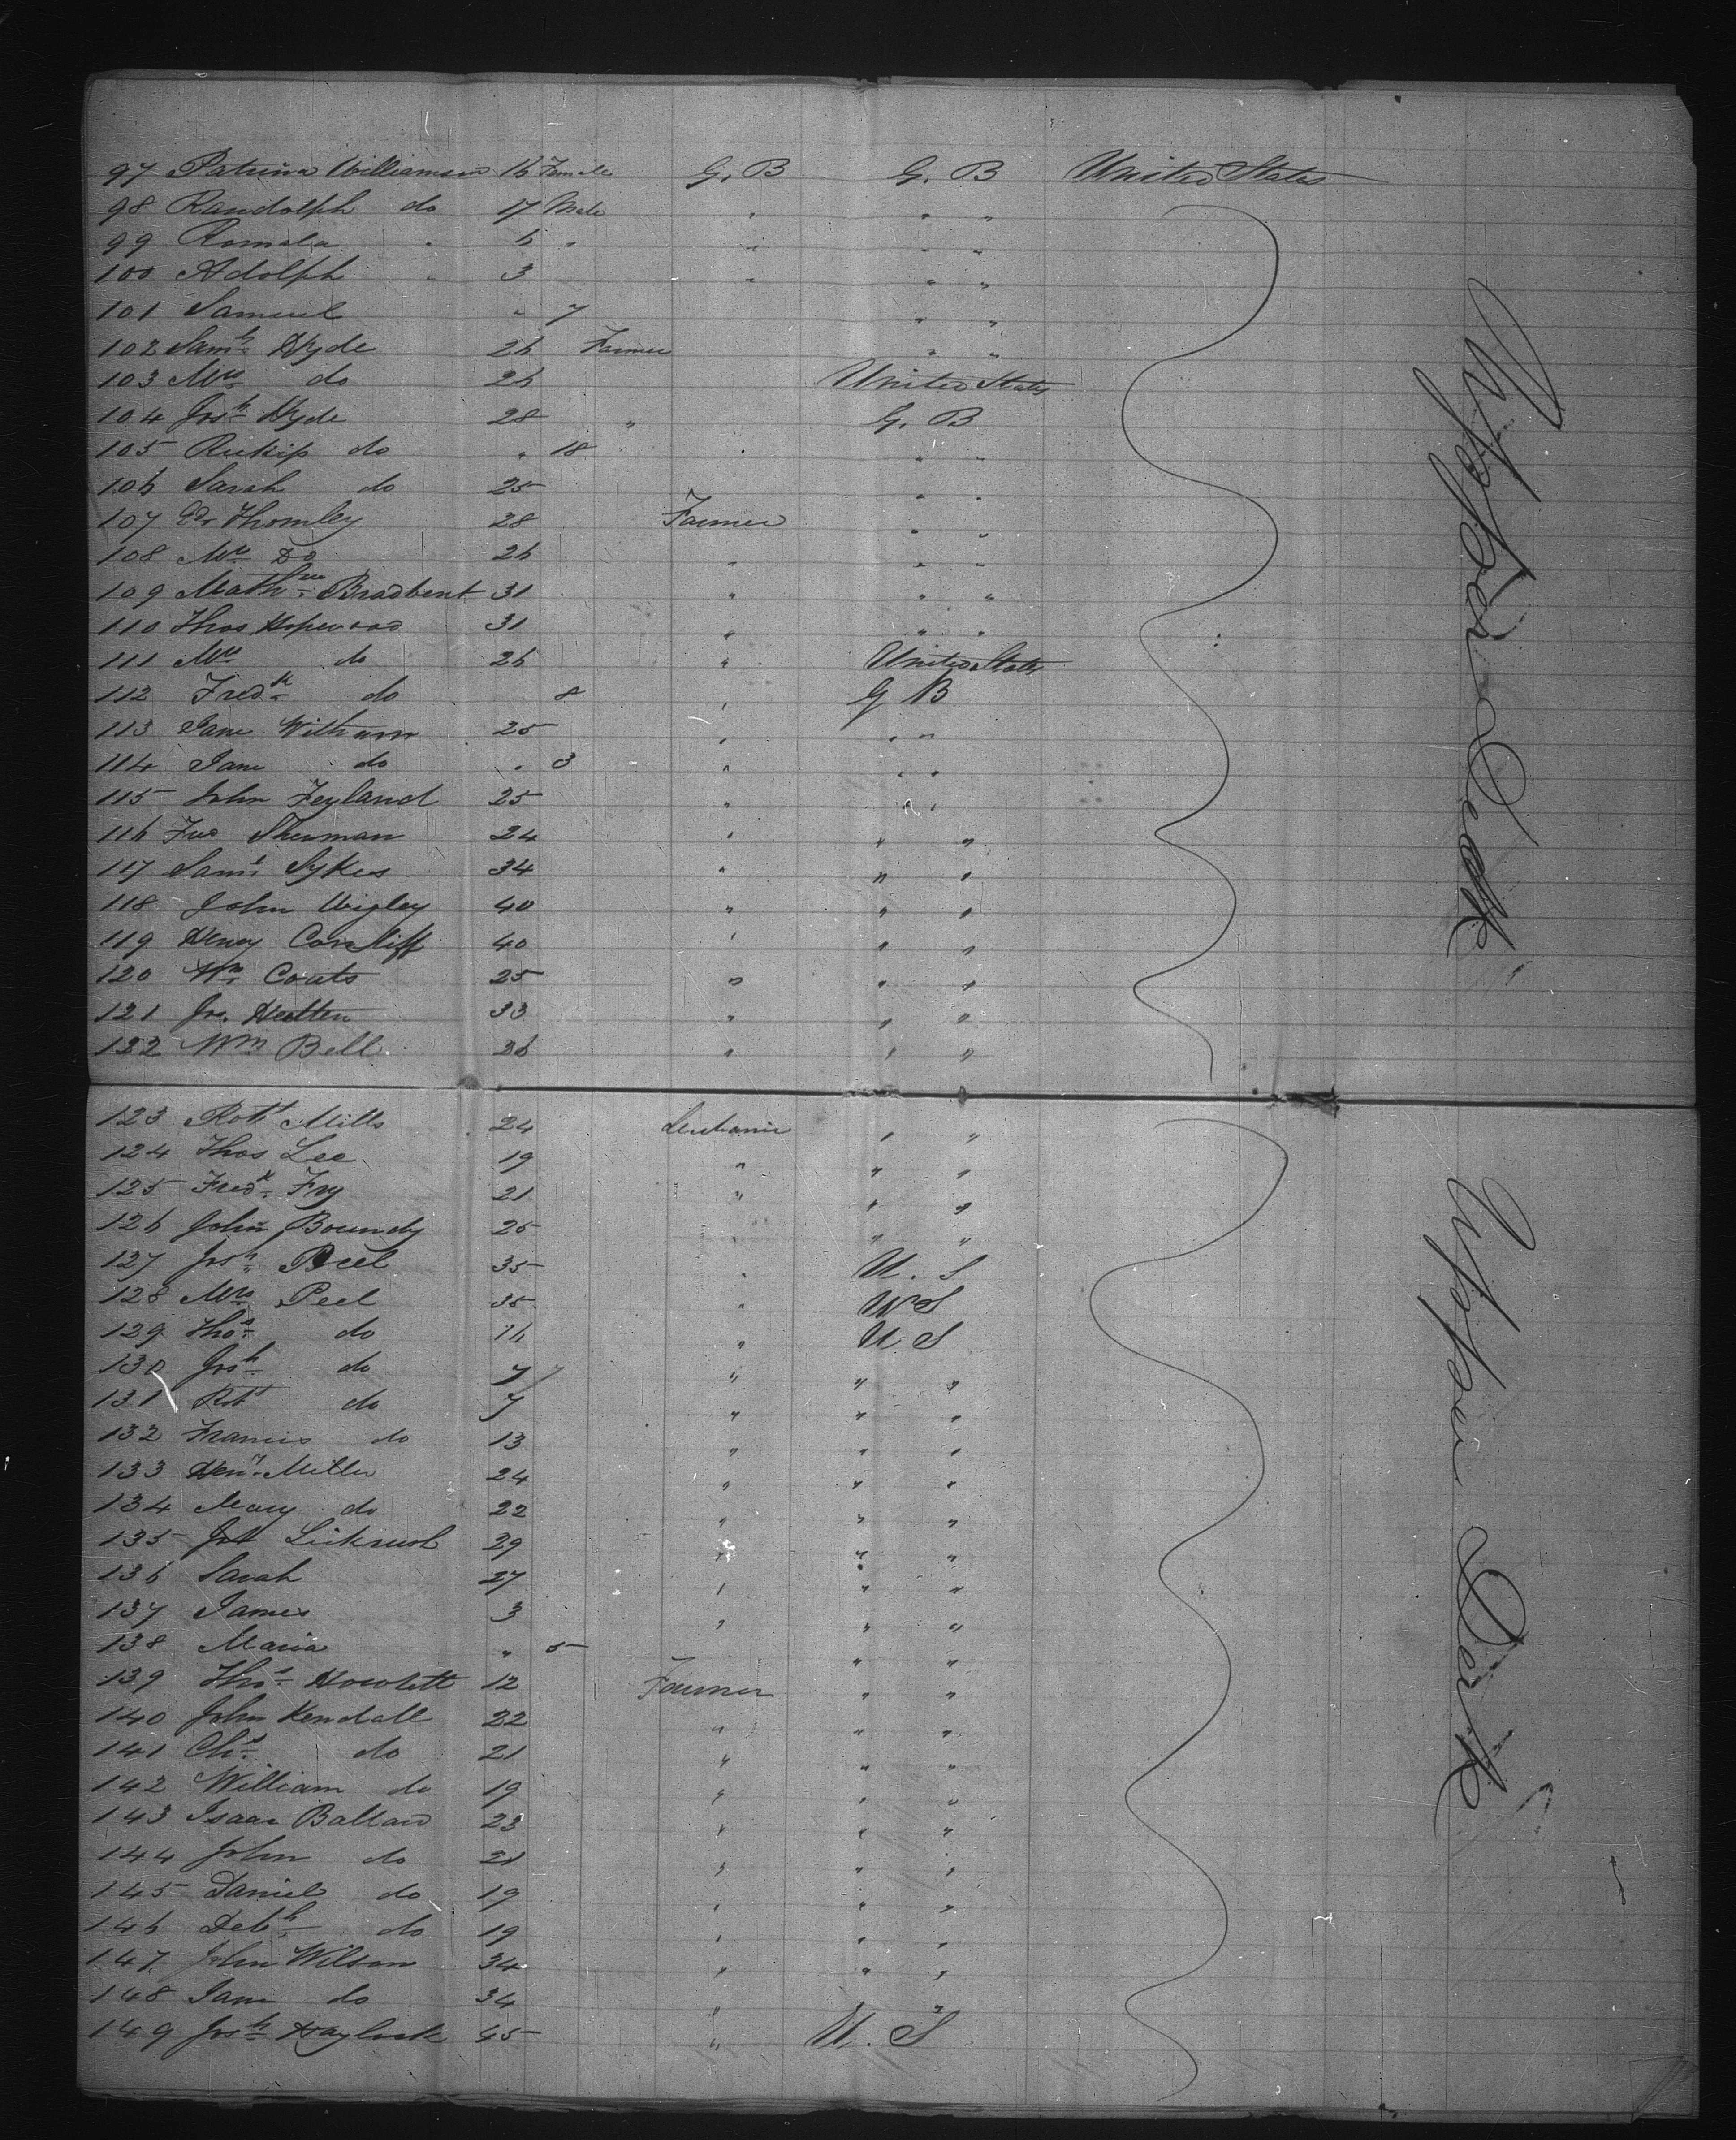 97 Patrina Williamson 16 Female G. B G. B United States
98 Randolph do 17 Male " " "
99 Romala " 6 " " " "
100 Adolph " 3 " " "
101 Samuel " 7 " "
102 Saml Hyde 26 Farmer " "
103 Mrs do 26 United States
104 Josh Hyde 28 " G. B
105 do " 18 " "
106 Sarah do 25 " "
107 Thomley 28 Farmer " "
108 Mrs Do 26 " " "
109 Mathw Bradbent 31 " " "
110 Thos Hopwood 31 " " "
111 Mrs do 26 " United States
112 Fredk do 8 " G B
113 Jane Witham 25 " " "
114 Jane do " 3 " " "
115 John Feyland 25 " " "
116 Sherman 24 " " "
117 Saml Sykes 34 " " "
118 John Wigley 40 " " "
119 Henry 40 " " "
120 Wm Coats 25 " " "
121 Jos. 33 " " "
122 Wm Bell 26 " " "
Upper Deck
123 Robt Mills 24 Mechanic " "
124 Thos Lee 19 " " "
125 Fredk Fry 21 " " "
126 John Boundy 25 " " "
127 Josh Peel 35 " U. S
128 Mrs Peel 35 " U S
129 Thos do 16 " U S
130 Josh do 7 " " "
131 Robt do 7 " " "
132 Francis do 13 " " "
133 Heny Miller 24 " " "
134 Mary do 22 " " "
135 29 " " "
136 Sarah 27 " " "
137 James 3 " " "
138 Maria " 5 " "
139 Thos Howlett 12 Farmer " "
140 John Kendall 22 " " "
141 Chs do 21 " " "
142 William do 19 " " "
143 Isaac Ballard 23 " " "
144 John do 21 " " "
145 Daniel do 19 " " "
146 Debh do 19 " " "
147 John Wilson 34 " " "
148 Jane do 34 " "
149 Josh Haylock 45 " U. S
Upper Deck